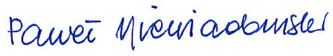 Paweł Niewiadomski